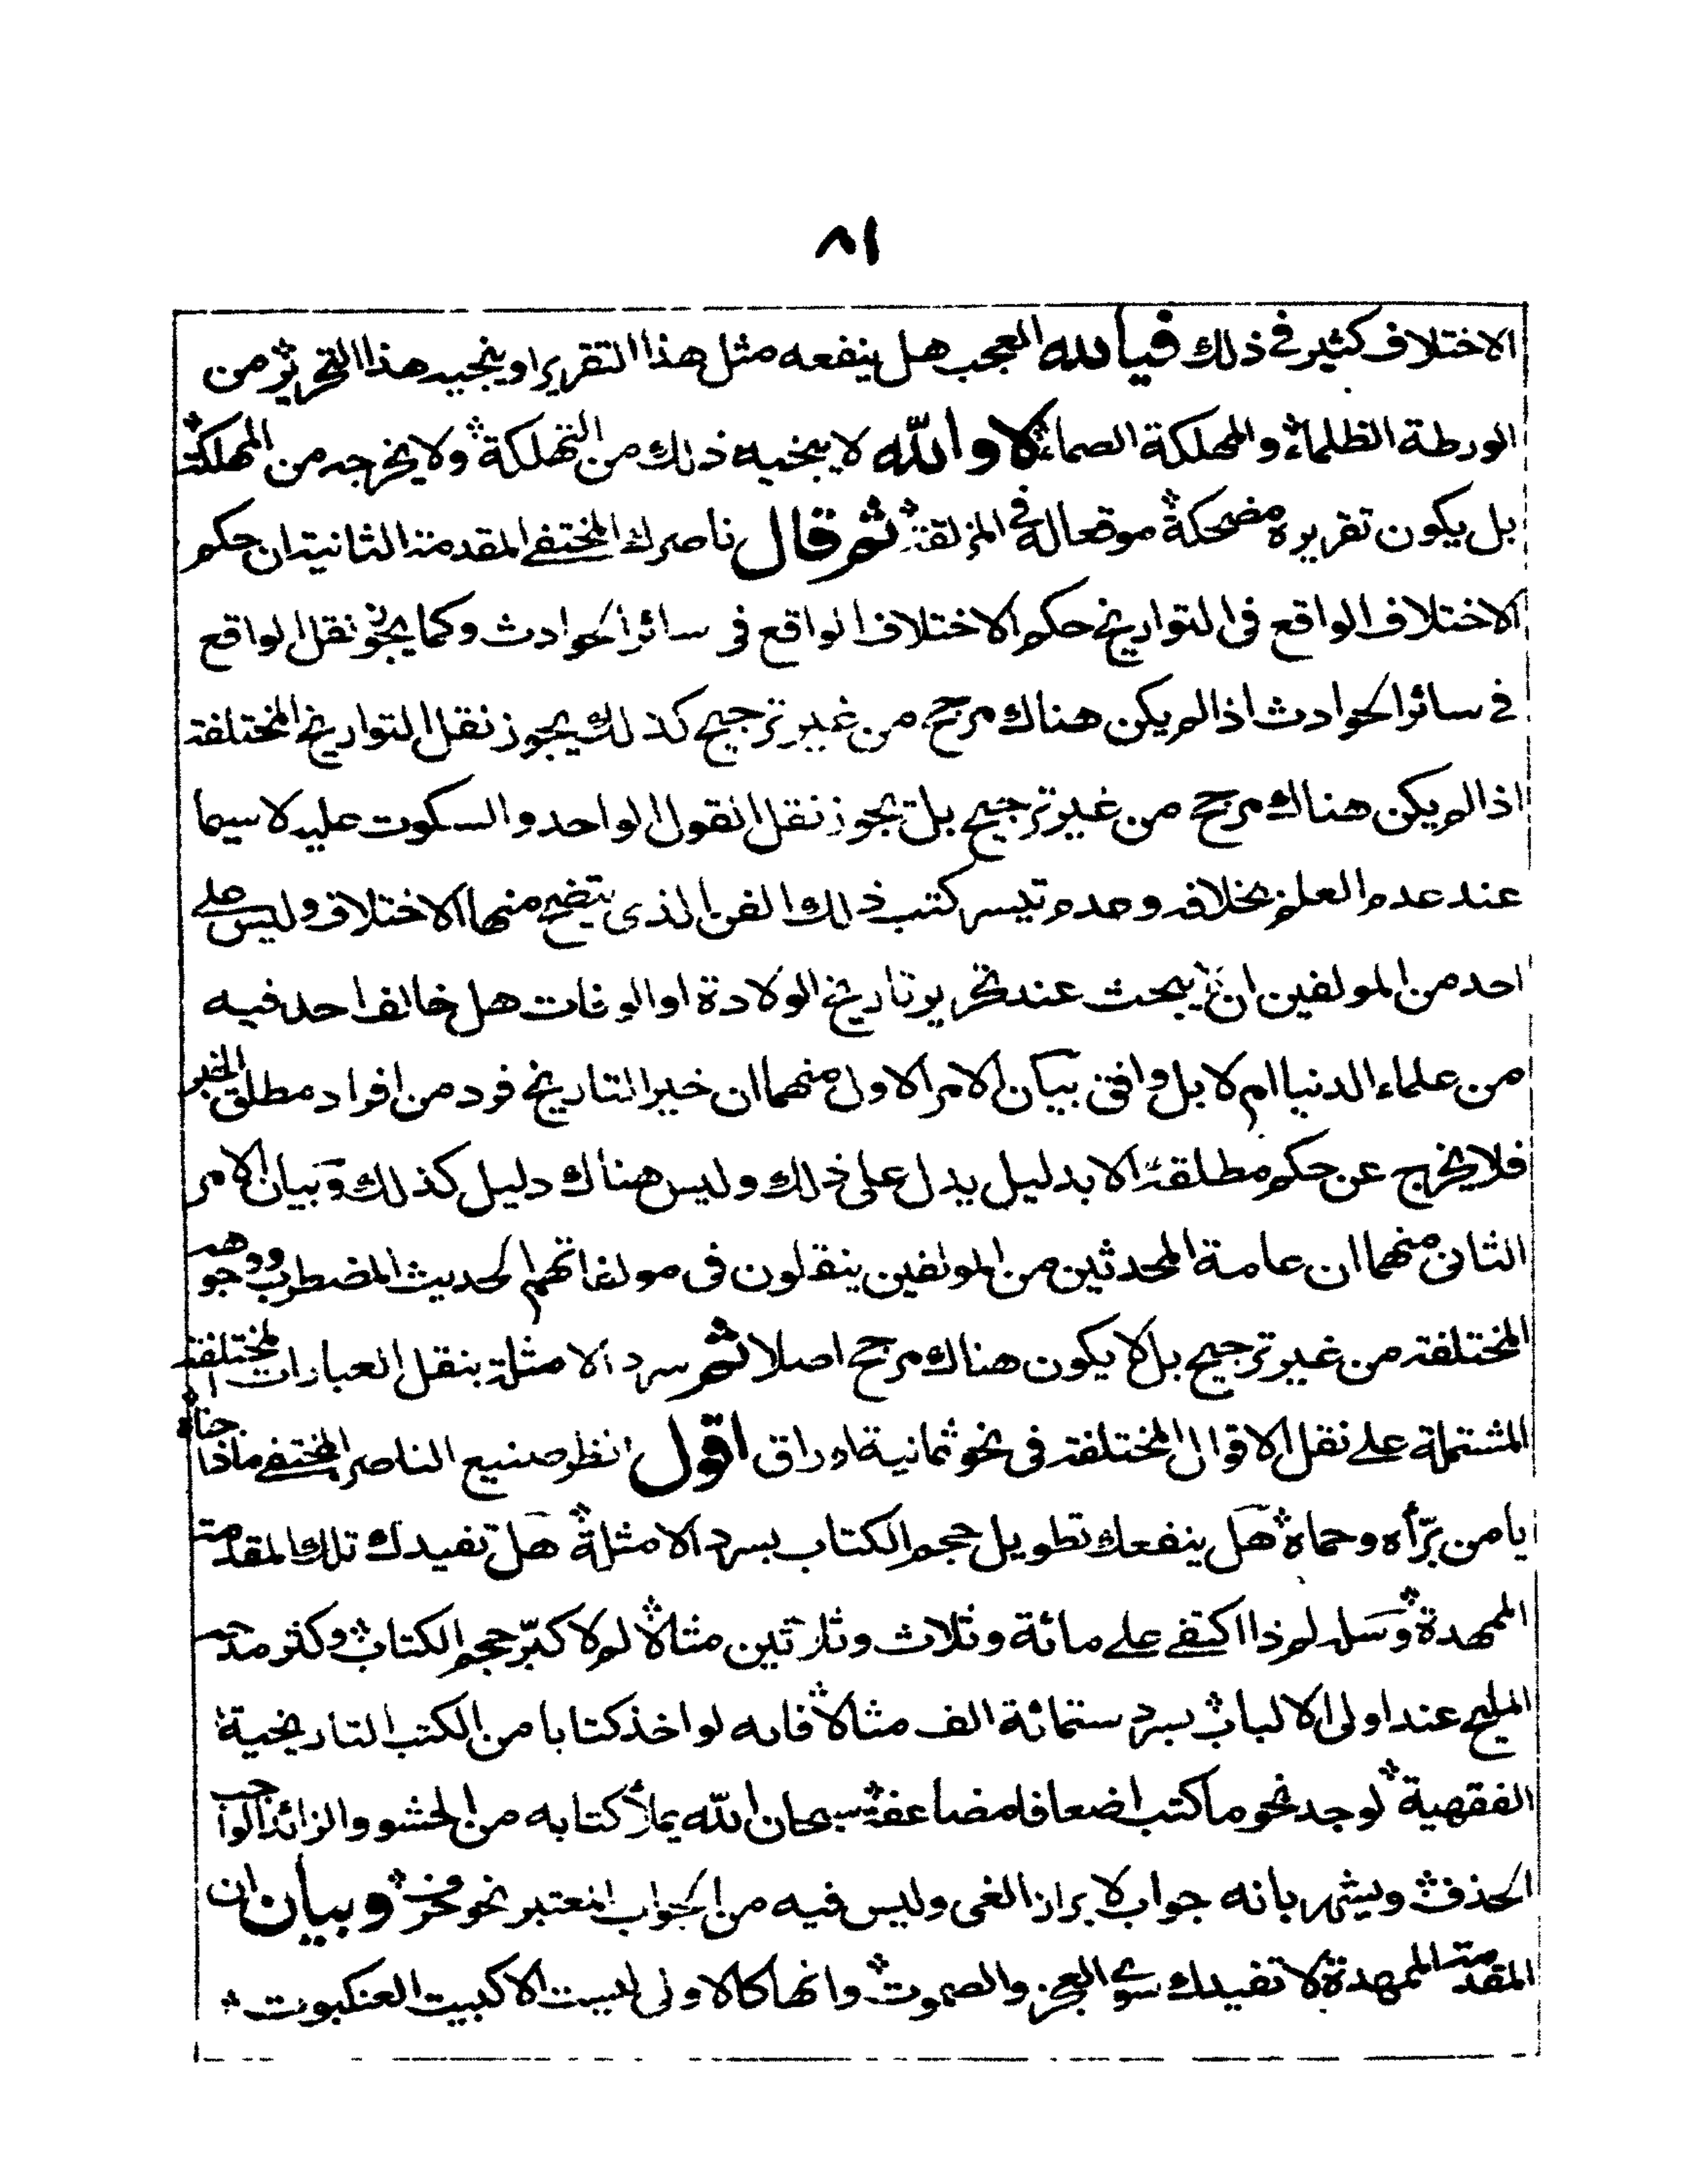 ٨١
الاختلاف كثير في ذلك فيا لله العجب هل ينفعه مثل هذا التقرير او ينجيه هذا التحرير من
الورطة الظلماء والمهلكة الصماء كلا والله لا ينجيه ذلك من التهلكة ولا يخرجه من المهلكة
بل يكون تقريره مضحكة موقعا له في المزلقة ثم قال ناصرك المختفي المقدمة الثانية ان حكم
الاختلاف الواقع في التواريخ حكم الاختلاف الواقع في سائر الحوادث وكما يجوز نقل الواقع
في سائر الحوادث اذا لم يكن هناك مرجح من غير ترجيح كذلك يجوز نقل التواريخ المختلفة
اذا لم يكن هناك مرجح من غير ترجيح بل يجوز نقل القول الواحد والسكوت عليه لا سيما
عند عدم العلم بخلافه وعدم تيسر كتب ذلك الفن الذى يتضح منها الاختلاف وليس على
احد من المولفين ان يبحث عند تحرير تاريخ الولادة او الوفات هل خالف احد فيه
من علماء الدنيا ام لا بل وافق بيان الامر الاول منهما ان خبر التاريخ فرد من افراد مطلق الخبر
فلا يخرج عن حكم مطلقه الا بدليل يدل على ذلك وليس هناك دليل كذلك وبيان الامر
الثانى منهما ان عامة المحدثين من المولفين ينقلون فى مولفاتهم الحديث المضطرب ووجوهه
المختلفة من غير ترجيح بل لا يكون هناك مرجح اصلا ثم سرد الامثلة بنقل العبارات المختلفة
المشتملة على نقل الاقوال المختلفة فى نحو ثمانية اوراق اقول انظر صنيع الناصر المختفي ماذا جناه
يا من برّأه وحماه هل ينفعك تطويل حجم الكتاب بسرد الامثلة هل تفيدك تلك المقدمة
الممهدة وسله لم ذا اكتفى على مائة وثلاث وثلاثين مثالا لم لا كبّر حجم الكتاب وكثر مدحه
المليح عند اولى الالباب بسرد ستمائة الف مثالا فانه لو اخذ كتابا من الكتب التاريخية
الفقهية لوجد نحو ما كتب اضعافا مضاعفة سبحان الله يملأ كتابه من الحشو والزائد الواجب
الحذف ويشهر بانه جواب لابراز الغى وليس فيه من الجواب المعتبر نحو حرف وبيان ان
المقدمة الممهدة لا تفيدك سوى العجز والصموت وانها كالاولى ليست الا كبيت العنكبوت